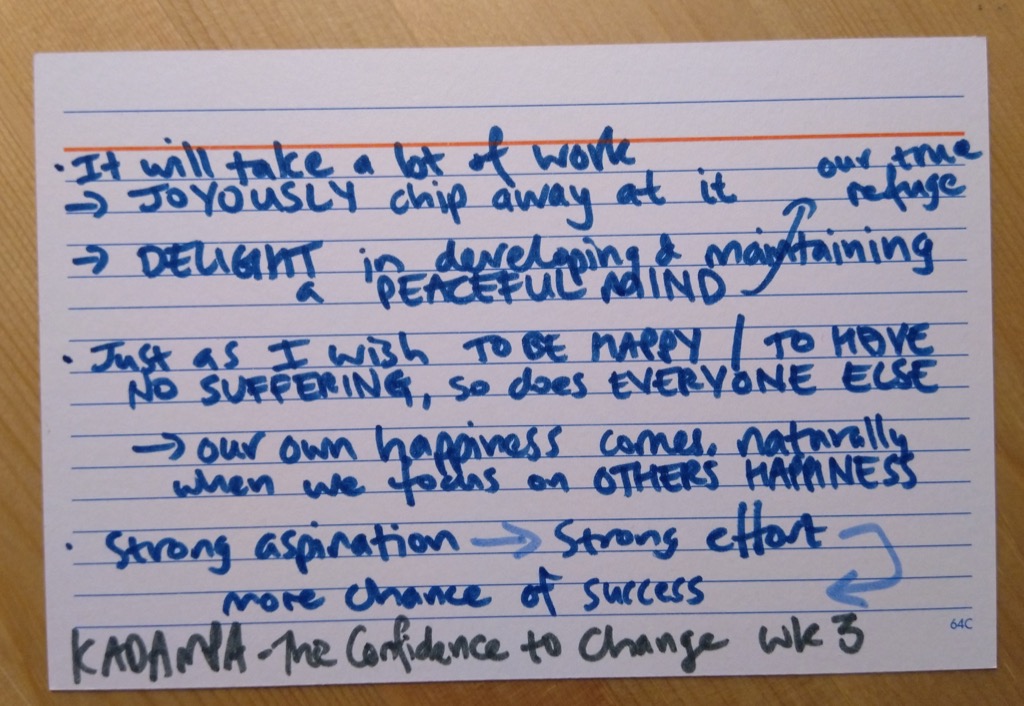 · It will take a lot of work
→ JOYOUSLY chip away at it
our true
refuge
→ DELIGHT in developing & maintaining
a PEACEFUL MIND
· Just as I wish TO BE HAPPY / TO HAVE
NO SUFFERING, so does EVERYONE ELSE
→ our own happiness comes naturally
when we focus on OTHERS HAPPINESS
· Strong aspiration → Strong effort
more chance of success
64C
KADAMPA - The Confidence to Change wk 3